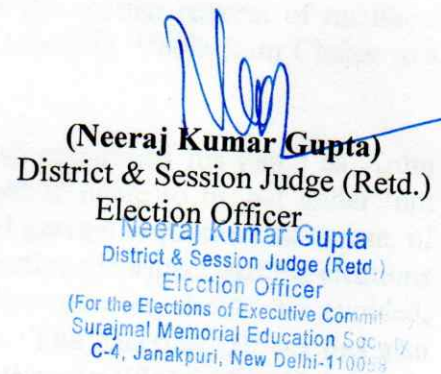 (Neeraj Kumar Gupta)
District & Session Judge (Retd.)
Election Officer
Neeraj Kumar Gupta
District & Session Judge (Retd.)
Election Officer
(For the Elections of Executive Commit
Surajmal Memorial Education Soc
C-4, Janakpuri, New Delhi-1100